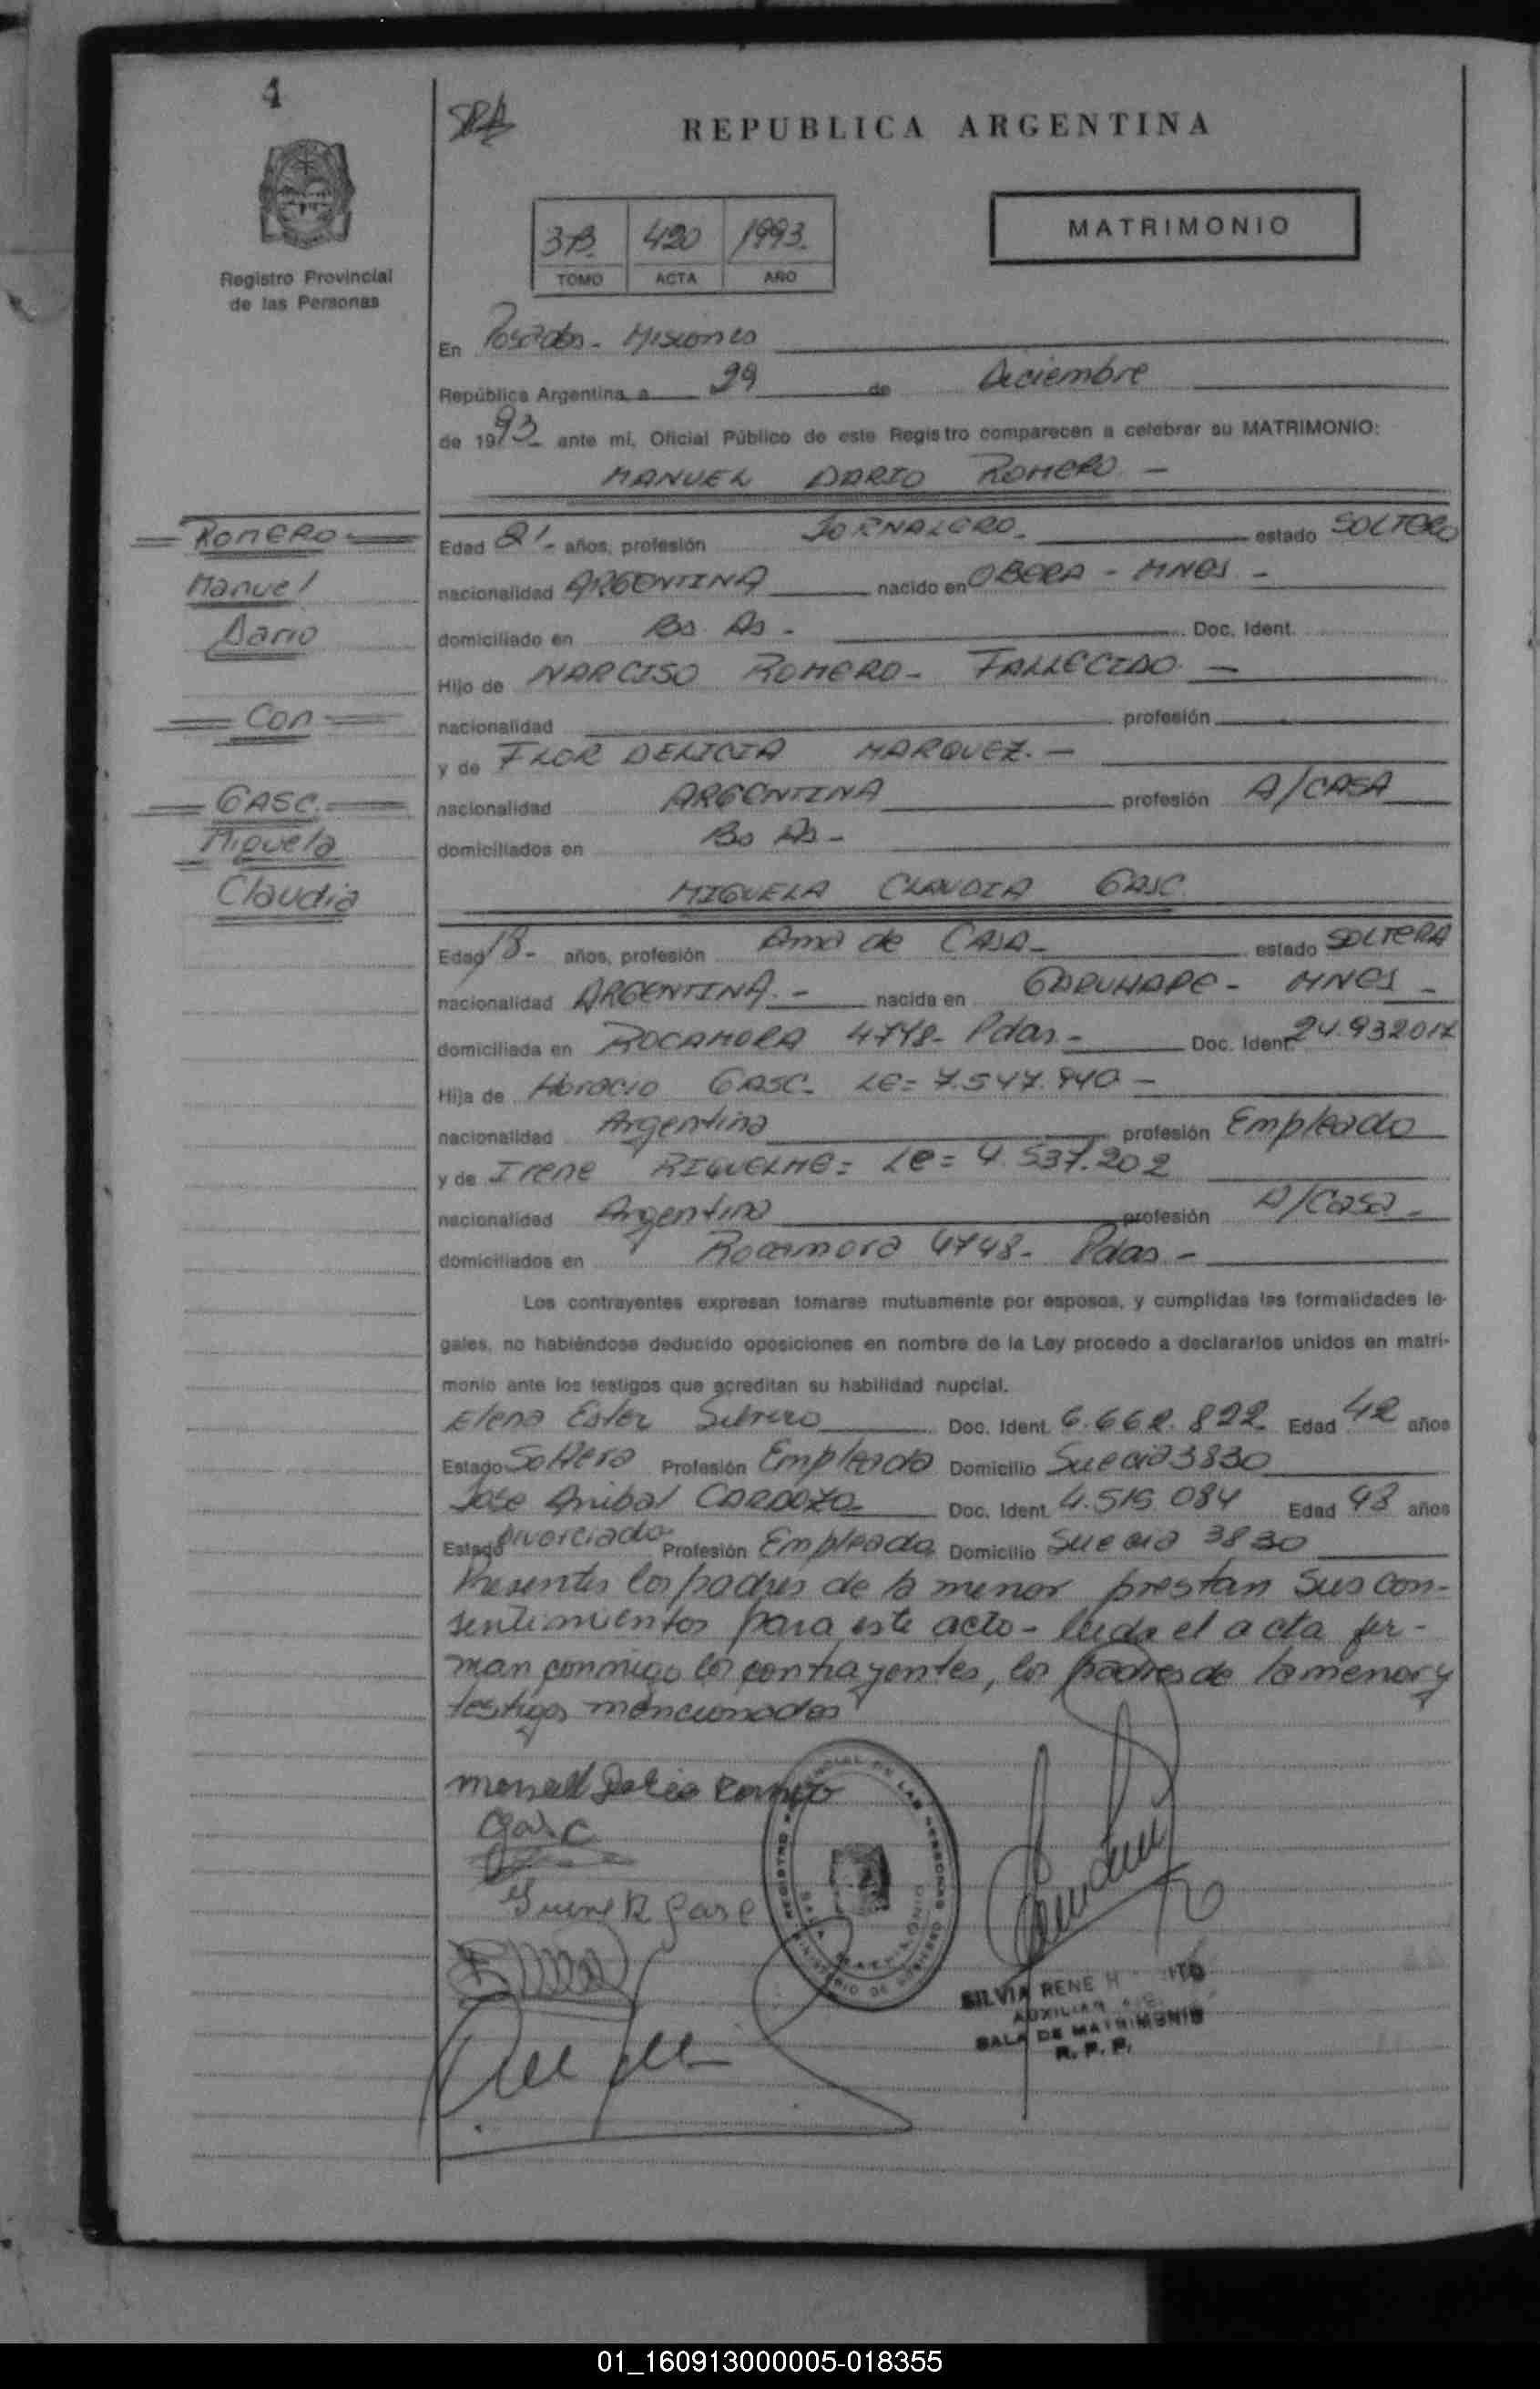 4
SRA
REPUBLICA ARGENTINA
3B. 420 1993.
TOMO ACTA AÑO
MATRIMONIO
Registro Provincial
de las Personas
En Posadas - Misiones
República Argentina, a 29 de Diciembre
de 1993 ante mi, Oficial Público de este Registro comparecen a celebrar su MATRIMONIO:
MANUEL DARIO ROMERO -
ROMERO
Manuel
Dario
Con
GASC.
Miguela
Claudia
Edad 21- años, profesión JORNALERO. estado SOLTERO
nacionalidad ARGENTINA nacido en OBERA - MNES -
domiciliado en Bs As - Doc. Ident.
Hijo de NARCISO ROMERO - FALLECIDO -
nacionalidad profesión
y de FLOR DELICIA MARQUEZ. -
nacionalidad ARGENTINA profesión A/CASA
domiciliados en Bs As -
MIGUELA CLAUDIA GASC.
Edad 18- años, profesión Ama de CASA - estado SOLTERA
nacionalidad ARGENTINA. - nacida en GARUHAPE - MNES -
domiciliada en ROCAMORA 4748- Pdas - Doc. Ident. 24.932017
Hija de Horacio GASC - LE= 7.547.940 -
nacionalidad Argentina profesión Empleado
y de Irene RIQUELME = LC= 4.537.202
nacionalidad Argentina profesión A/Casa -
domiciliados en Rocamora 4748- Pdas -
Los contrayentes expresan tomarse mutuamente por esposos, y cumplidas las formalidades le-
gales, no habiéndose deducido oposiciones en nombre de la Ley procedo a declararlos unidos en matri-
monio ante los testigos que acreditan su habilidad nupcial.
Elena Ester Doc. Ident. 6.662.822 Edad 42 años
Estado Soltera Profesión Empleada Domicilio Suecia 3830
Jose Anibal CARDOZO Doc. Ident. 4.515.084 Edad 48 años
Estado Divorciado Profesión Empleado Domicilio Suecia 3830
Presentes los padres de la menor prestan sus con-
sentimientos para este acto - leida el acta fir-
man conmigo los contrayentes, los padres de la menor y
testigos mencionados
Manuel Dario Romero
Gasc
Irene R Gasc
REGISTRO PROVINCIAL DE LAS PERSONAS
SALA MATRIMONIO
MINISTERIO DE GOBIERNO
SILVIA RENE
AUXILIAR
SALA DE MATRIMONIO
R. P. P.
01_160913000005-018355